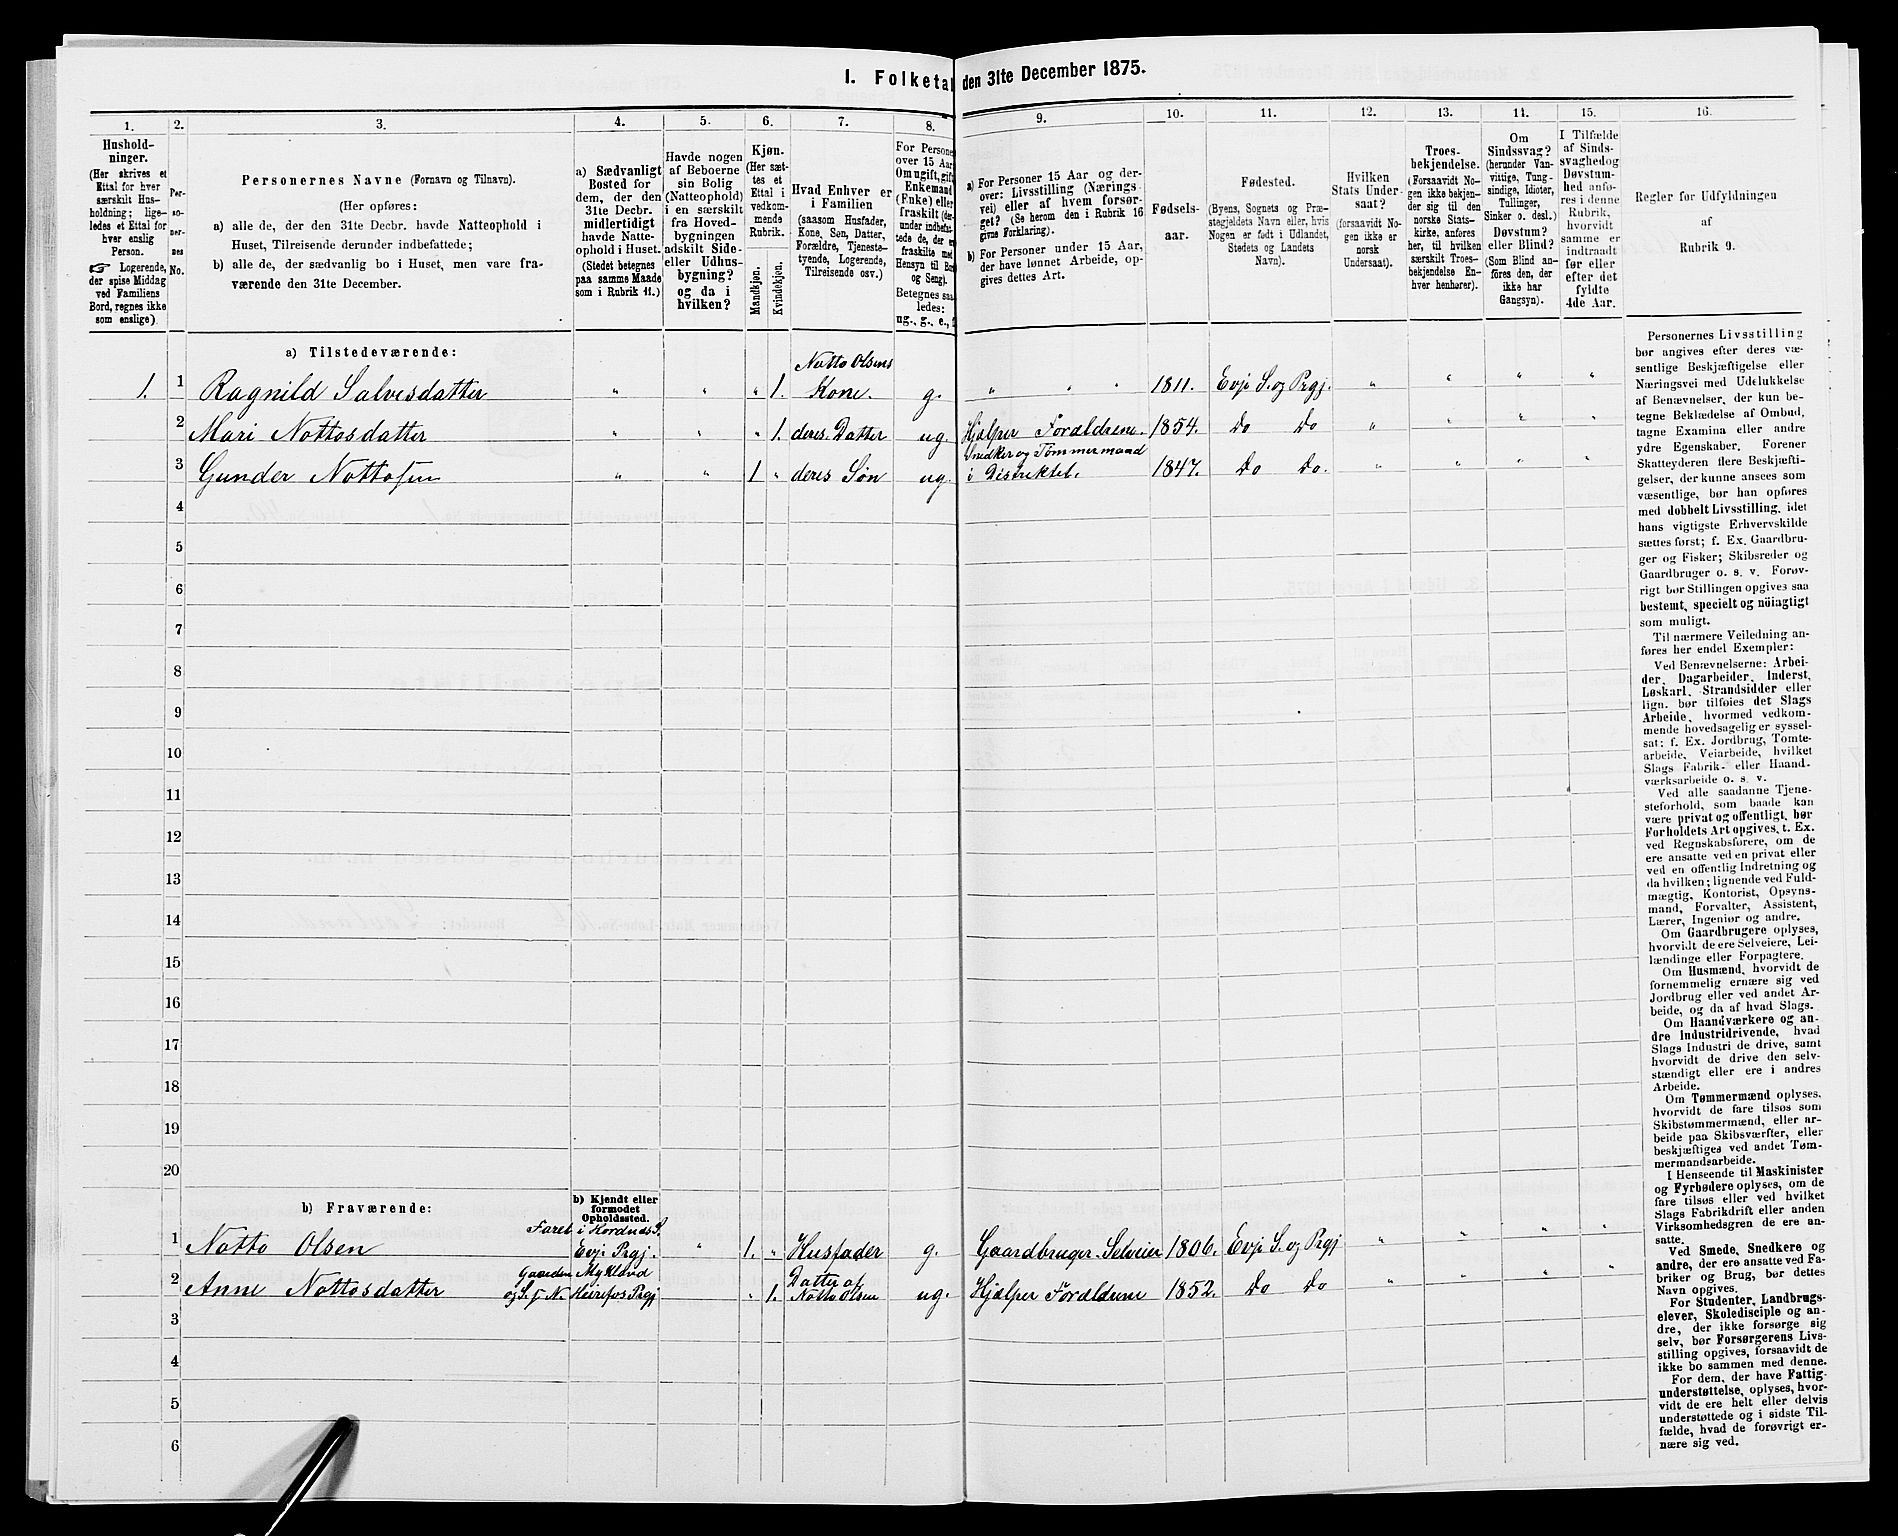 I. Folketal den 31te December 1875.
1.
2.
3.
4.
5.
6.
7.
8.
9.
10.
11.
12.
13.
14.
15.
16.
Hushold-
ninger.
(Her skrives et
Ettal for hver
særskilt Hus-
holdning; lige-
ledes et Ettal for
hver enslig
Person.
☞ Logerende,
der spise Middag
ved Familiens
Bord, regnes ikke
som enslige).
Per-
so-
ner-
nes
No.
Personernes Navne (Fornavn og Tilnavn).
(Her opføres:
a) alle de, der den 31te Decbr. havde Natteophold i
Huset, Tilreisende derunder indbefattede;
b) alle de, der sædvanlig bo i Huset, men vare fra-
værende den 31te December.
a) Sædvanligt
Bosted for
dem, der den
31te Decbr.
midlertidigt
havde Natte-
ophold i Huset.
(Stedet betegnes
paa samme Maade
som i Rubrik 11.)
Havde nogen
af Beboerne
sin Bolig
(Natteophold)
i en særskilt
fra Hoved-
bygningen
adskilt Side-
eller Udhus-
bygning?
og da i
hvilken?
Kjøn.
(Her sæt-
tes et
Ettal i
vedkom-
mende
Rubrik.
Mandkjøn.
Kvindekjøn.
Hvad Enhver er
i Familien
(saasom Husfader,
Kone, Søn, Datter,
Forældre, Tjeneste-
tyende, Logerende,
Tilreisende osv.)
For Personer
over 15 Aar
Om ugift, gift
Enkemand
(Enke) eller
fraskilt (der-
under indbefat-
tede de, der er
fraskilte med
Hensyn til Bord
og Seng).
Betegnes saa-
ledes:
ug., g., e.,
a) For Personer 15 Aar og der-
over: Livsstilling (Nærings-
vei) eller af hvem forsør-
get? (Se herom den i Rubrik 16
givns Forklaring).
b) For Personer under 15 Aar,
der have lønnet Arbeide, op-
gives dettes Art.
Fødsels-
aar.
Fødested.
(Byens, Sognets og Præ-
stegjeldets Navn eller, hvis
Nogen er født i Udlandet,
Stedets og Landets
Navn).
Hvilken
Stats Under-
saat?
(forsaavidt No-
gen ikke er
norsk
Undersaat).
Troes-
bekjendelse.
(Forsaavidt No-
gen ikke bekjen-
der sig til den
norske Stats-
kirke, anføres
her, til hvilken
særskilt Troes-
bekjendelse En-
hver henhører).
Om
Sindssvag?
(herunder Van-
vittige, Tung-
sindige, Idioter,
Tullinger,
Sinker o. desl.)
Døvstum?
eller Blind?
(Som Blind an-
føres den, der
ikke har
Gangsyn).
I Tilfælde
af Sinds-
svaghed og
Døvstum-
hed anfø-
res i denne
Rubrik,
hvorvidt
samme er
indtraadt
før eller
efter det
fyldte
4de Aar.
Regler for Udfyldningen
af
Rubrik 9.
a) Tilstedeværende:
1. 1 Ragnild Salvesdatter " " " 1. Notto Olsens Kone. g. " " " 1811. Evje S. og Prgj. " " " "
2 Mari Nottosdatter " " " 1. deres Datter ug. Hjælper Forældrene. 1854. Do Do " " " "
3 Gunder Nottosen " " 1 " deres Søn ug. Snedker og Tømmermand i Distriktet. 1847. Do Do. " " " "
4
5
6
7
8
9
10
11
12
13
14
15
16
17
18
19
20
b) Fraværende:
b) Kjendt eller
formodet
Opholdssted.
1 Notto Olsen Evje Prgj. " 1. " Husfader g. Gaardbruger. Selveier 1806. Evje S. og Prgj " " " "
2 Anne Nottosdatter Gaarden Mykland " 1. Datter af Notto Olsen ug. Hjælper Forældrene 1852. Do Do " " " "
3
4
5
6
Personernes Livsstilling
bør angives efter deres væ-
sentlige Beskjæftigelse eller
Næringsvei med Udelukkelse
af Benævnelser, der kun be-
tegne Beklædelse af Ombud,
tagne Examina eller andre
ydre Egenskaber. Forener
Skatteyderen flere Beskjæfti-
gelser, der kunne ansees som
væsentlige, bør han opføres
med dobbelt Livsstilling, idet
hans vigtigste Erhvervskilde
sættes først; f. Ex. Gaardbru-
ger og Fisker; Skibsreder og
Gaardbruger o. s. v. Forøv-
rigt bør Stillingen opgives saa
bestemt, specielt og nöiagtigt
som muligt.
Til nærmere Veiledning an-
føres her endel Exempler:
Ved Benævnelserne: Arbei-
der, Dagarbeider, Inderst,
Løskarl, Strandsidder eller
lign. bør tilføies det Slags
Arbeide, hvormed vedkom-
mende hovedsagelig er syssel-
sat; f. Ex. Jordbrug, Tomte-
arbeide, Veiarbeide, hvilket
Slags Fabrik- eller Haand-
værksarbeide o. s. v.
Ved alle saadanne Tjene-
steforhold, som baade kan
være privat og offentligt, bør
Forholdets Art opgives, t. Ex.
ved Regnskabsførere, om de
ere ansatte ved en privat eller
ved en offentlig Indretning og
da hvilken; lignende ved Fuld-
mægtig, Kontorist, Opsyns-
mand, Forvalter, Assistent,
Lærer, Ingeniør og andre.
Om Gaardbrugere oplyses,
hvorvidt de ere Selveiere, Lei-
lændinge eller Forpagtere.
Om Husmænd, hvorvidt de
fornemmelig ernære sig ved
Jordbrug eller ved andet Ar-
beide, og da af hvad Slags.
Om Haandværkere og an-
dre Industridrivende, hvad
Slags Industri de drive, samt
hvorvidt de drive den selv-
stændigt eller ere i andres
Arbeide.
Om Tømmermænd oplyses,
hvorvidt de fare tilsøs som
Skibstømmermænd, eller ar-
beide paa Skibsværfter, eller
beskjæftiges ved andet Tøm-
mermandsarbeide.
I Henseende til Maskinister
og Fyrbødere oplyses, om de
fare tilsøs eller ved hvilket
Slags Fabrikdrift eller anden
Virksomhedsgren de ere an-
satte.
Ved Smede, Snedkere og
andre, der ere ansatte ved Fa-
briker og Brug, bør dettes
Navn opgives.
For Studenter, Landbrugs-
elever, Skoledisciple og an-
dre, der ikke forsørge sig
selv, bør Forsørgerens Livs-
stilling opgives, forsaavidt de
ikke bo sammen med denne.
For dem, der have Fattig-
understøttelse, oplyses, hvor-
vidt de ere helt eller delvis
understøttede og i sidste Til-
fælde, hvad de forøvrigt er-
nære sig ved.